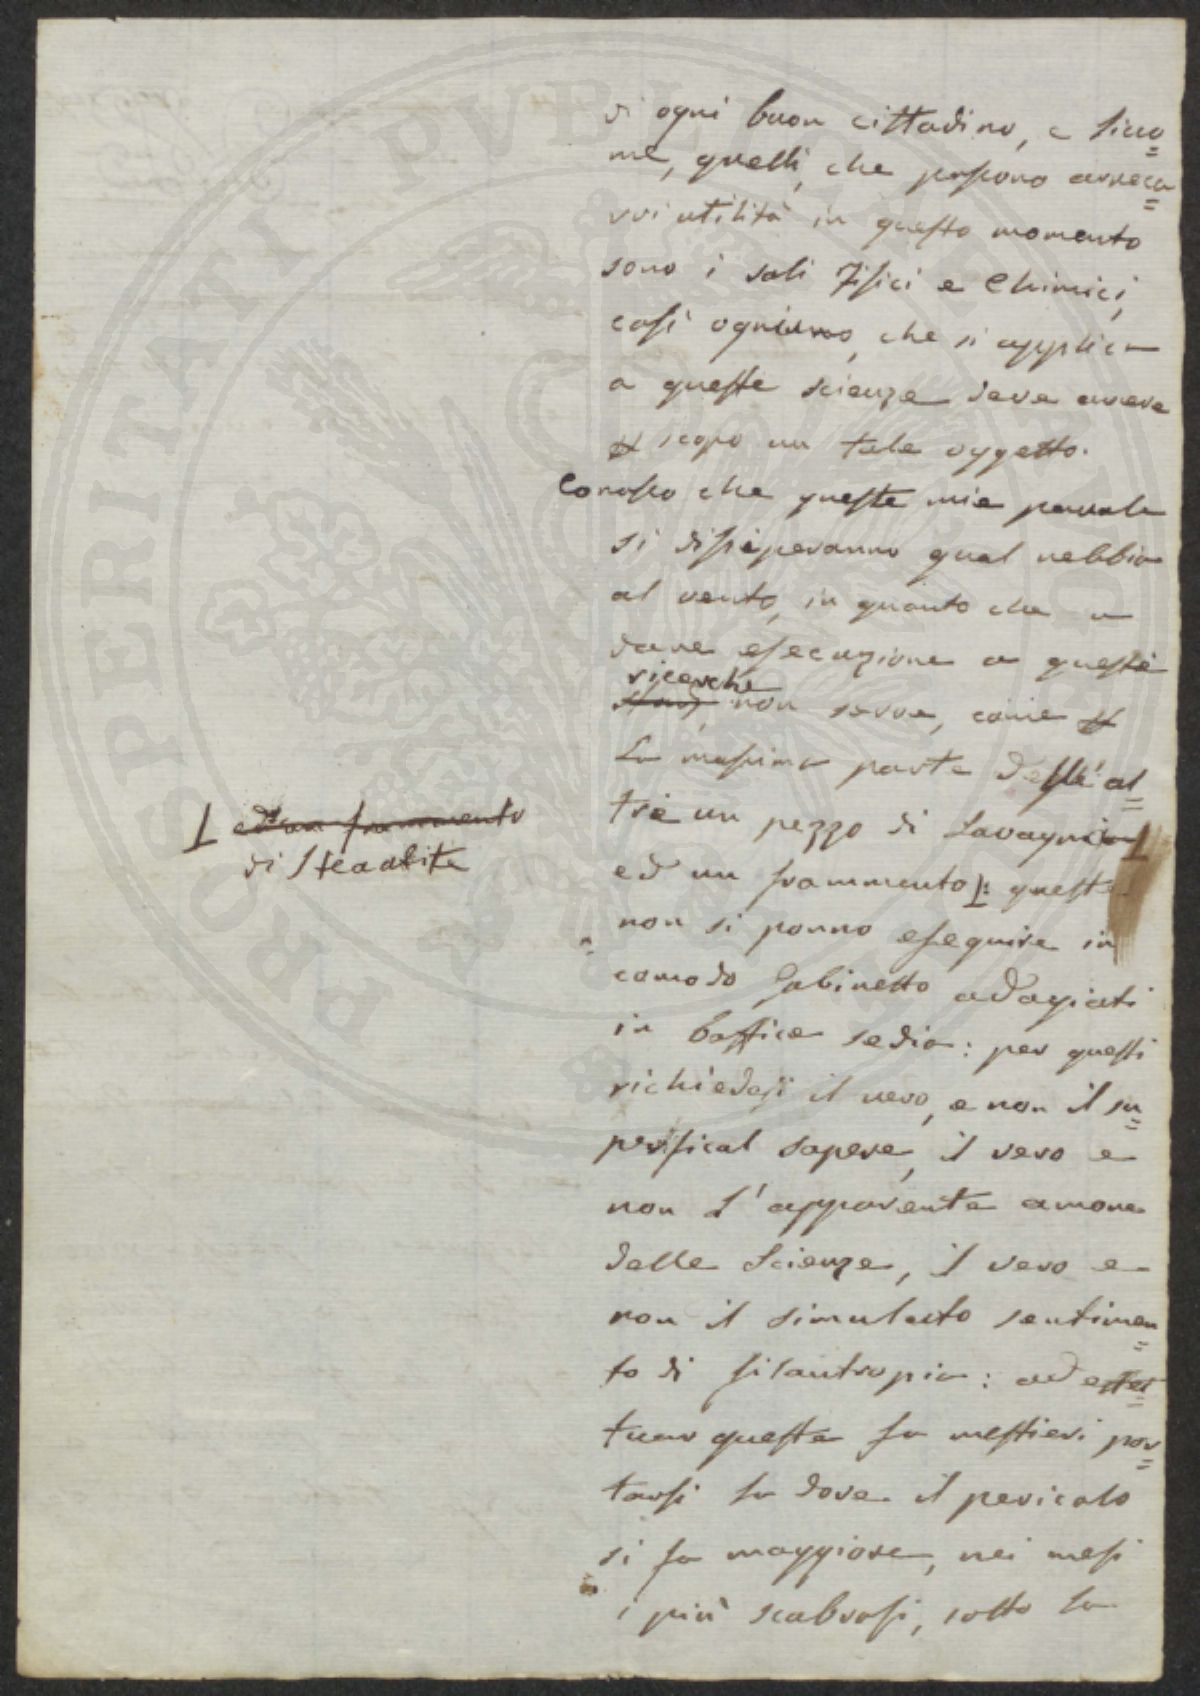 di ogni buon cittadino, e sicco=
me, quelli, che possono arreca=
rvi utilità in questo momento
sono i soli Fisici e Chimici,
così ogniuno, che si applica
a queste scienze deve avere
a scopo un tale oggetto.
Conosco che queste mie parole
si dissiperanno qual nebbia
al vento, in quanto che a
dare esecuzione a queste
ricerche
non serve, come
la massima parte dell'al=
tre un pezzo di Lavagna
ed un frammento: queste
ed un frammento
di Steatite
non si ponno eseguire in
comodo Gabinetto adagiati
in soffice sedia: per questi
richiedesi il vero, e non il su=
perfical sapere, il vero e
non l'apparente amore
delle Scienze, il vero e
non il simulato sentimen=
to di filantropia: ad effet
tuar queste fa mestieri por=
tarsi la dove il pericolo
si fa maggiore, nei mesi
i più scabrosi, sotto la
PROSPERITATI PVBLICAE